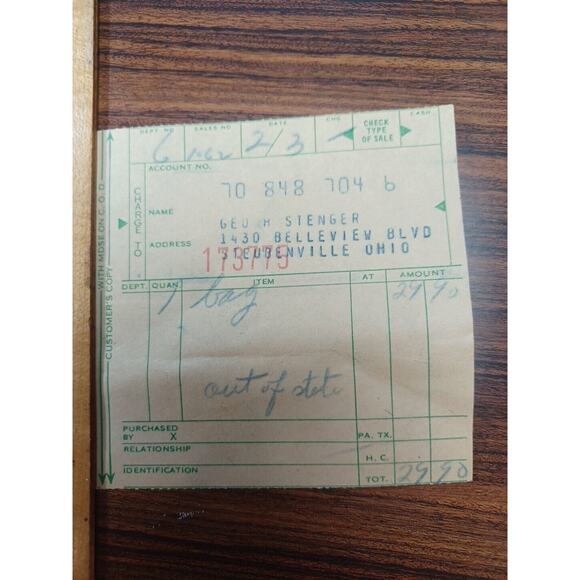 DEPT. NO. SALES NO. DATE CHG. CASH
6 1-62 2/3 CHECK TYPE OF SALE
ACCOUNT NO.
70 848 704 6
CHARGE TO
NAME GEO H STENGER
ADDRESS 1430 BELLEVIEW BLVD
STEUBENVILLE OHIO
173775
WITH MDSE ON C.O.D.
CUSTOMER'S COPY
DEPT. QUAN. ITEM AT AMOUNT
1 bag 29 90
out of state
PURCHASED BY X PA. TX.
RELATIONSHIP H. C.
IDENTIFICATION TOT. 29 90